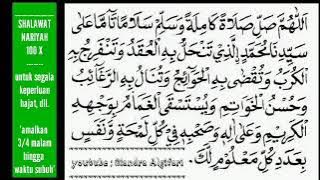 SHALAWAT
NARIYAH
100 X
untuk segala
keperluan
hajat, dll.
'amalkan
3/4 malam
hingga
waktu subuh'
اَللّٰهُمَّ صَلِّ صَلَاةً كَامِلَةً وَسَلِّمْ سَلَامًا تَامًّا عَلَى
سَيِّدِنَا مُحَمَّدِ الَّذِيْ تَنْحَلُّ بِهِ الْعُقَدُ وَتَنْفَرِجُ بِهِ
الْكُرَبُ وَتُقْضٰى بِهِ الْحَوَائِجُ وَتُنَالُ بِهِ الرَّغَائِبُ
وَحُسْنُ الْخَوَاتِمِ وَيُسْتَسْقَى الْغَمَامُ بِوَجْهِهِ
الْكَرِيْمِ وَعَلٰى اٰلِهِ وَصَحْبِهِ فِيْ كُلِّ لَمْحَةٍ وَنَفَسٍ
بِعَدَدِ كُلِّ مَعْلُوْمٍ لَكَ
youtube : Mandra Algifari